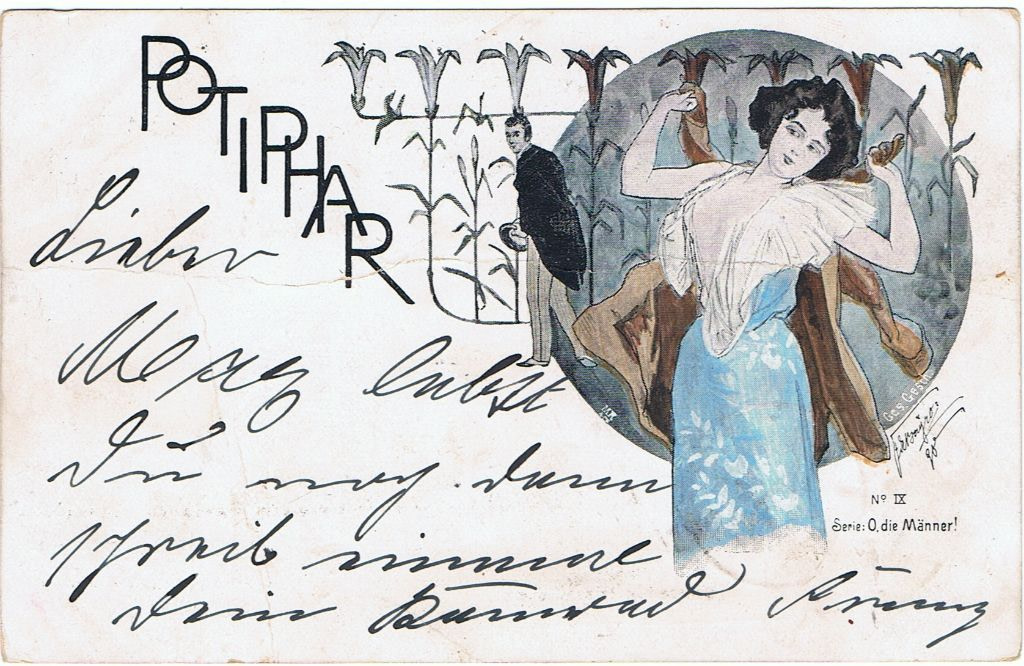 POTIPHAR
Lieber
Max lebst
Du noch dann
schreib einmal
Dein Kamerad
Ges. Gesch.
98
Nº IX
Serie: O, die Männer!